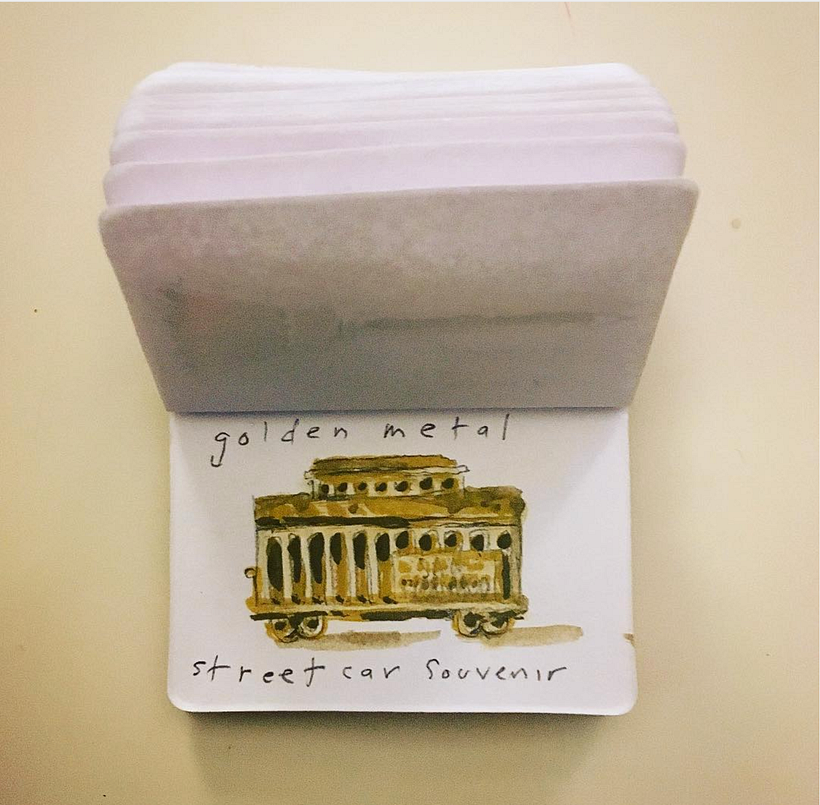 golden metal
street car souvenir